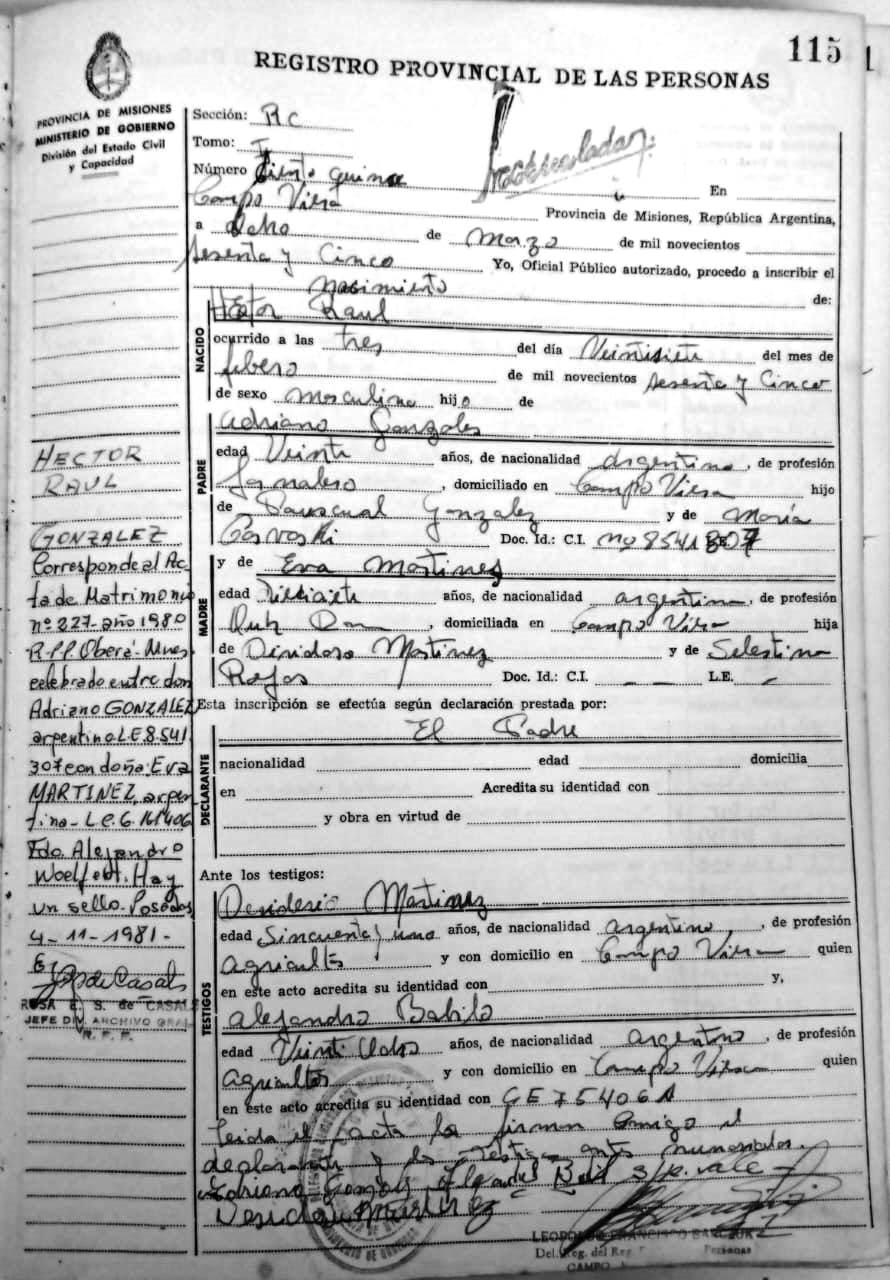 115
REGISTRO PROVINCIAL DE LAS PERSONAS
PROVINCIA DE MISIONES
MINISTERIO DE GOBIERNO
División del Estado Civil
y Capacidad
Sección: RC
Tomo: I
Número Ciento quince En
Campo Viera Provincia de Misiones, República Argentina,
a Ocho de Marzo de mil novecientos
Sesenta y Cinco Yo, Oficial Público autorizado, procedo a inscribir el
Nacimiento de:
NACIDO
Héctor Raul
ocurrido a las tres del día Veintisiete del mes de
febrero de mil novecientos Sesenta y Cinco
de sexo masculino hijo de
PADRE
Adriano Gonzales
edad Veinte años, de nacionalidad Argentino, de profesión
Jornalero, domiciliado en Campo Viera hijo
de Pauscual Gonzalez y de María
Doc. Id.: C.I. 8541307
MADRE
y de Eva Martinez
edad Diesisiete años, de nacionalidad argentina, de profesión
, domiciliada en Campo Viera hija
de Martinez y de Selestina
Rojas Doc. Id.: C.I. — — L.E. —
Esta inscripción se efectúa según declaración prestada por:
DECLARANTE
El Padre
nacionalidad edad domicilia
en Acredita su identidad con
y obra en virtud de
Ante los testigos:
TESTIGOS
Desiderio Martinez
edad Sincuenta y uno años, de nacionalidad argentino, de profesión
Agricultor y con domicilio en Campo Viera quien
en este acto acredita su identidad con y,
Alejandro
edad Veinti años, de nacionalidad Argentino, de profesión
Agricultor y con domicilio en Campo Viera quien
en este acto acredita su identidad con
Leida el acta la firman Comigo el
declarante y los testigos antes
HECTOR
RAUL
GONZALEZ
Corresponde al Ac-
ta de Matrimonio
nº 227-año 1980
R.P.P. Oberá-Mnes
celebrado entre don
Adriano GONZALEZ
argentino L.E 8.541
307 con doña: Eva
MARTINEZ, argen-
tina- L.C. 6.161406
Fdo. Alejandro
. Hay
un sello. Posadas
4-11-1981-
ROSA E. S. de CASALS
JEFE DIV. ARCHIVO GRAL.
R. P. P.
LEOPOLDO FRANCISCO
Del. Reg. del Personas
CAMPO